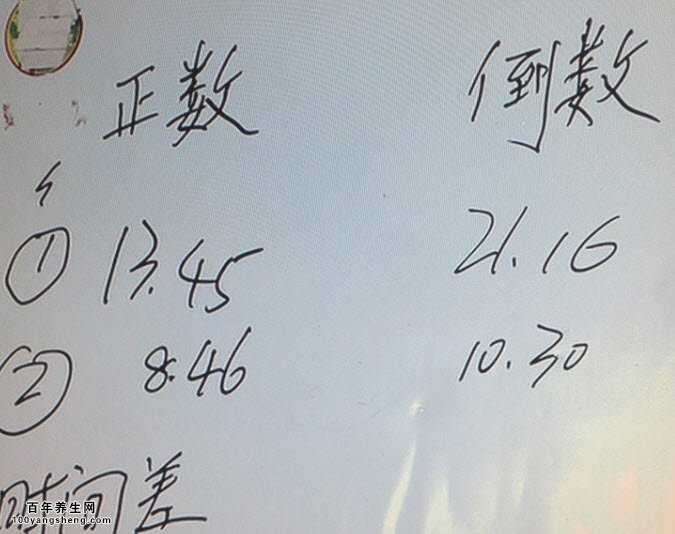 正数 倒数
① 13.45 21.16
② 8.46 10.30
时间差
百年养生网
100yangsheng.com